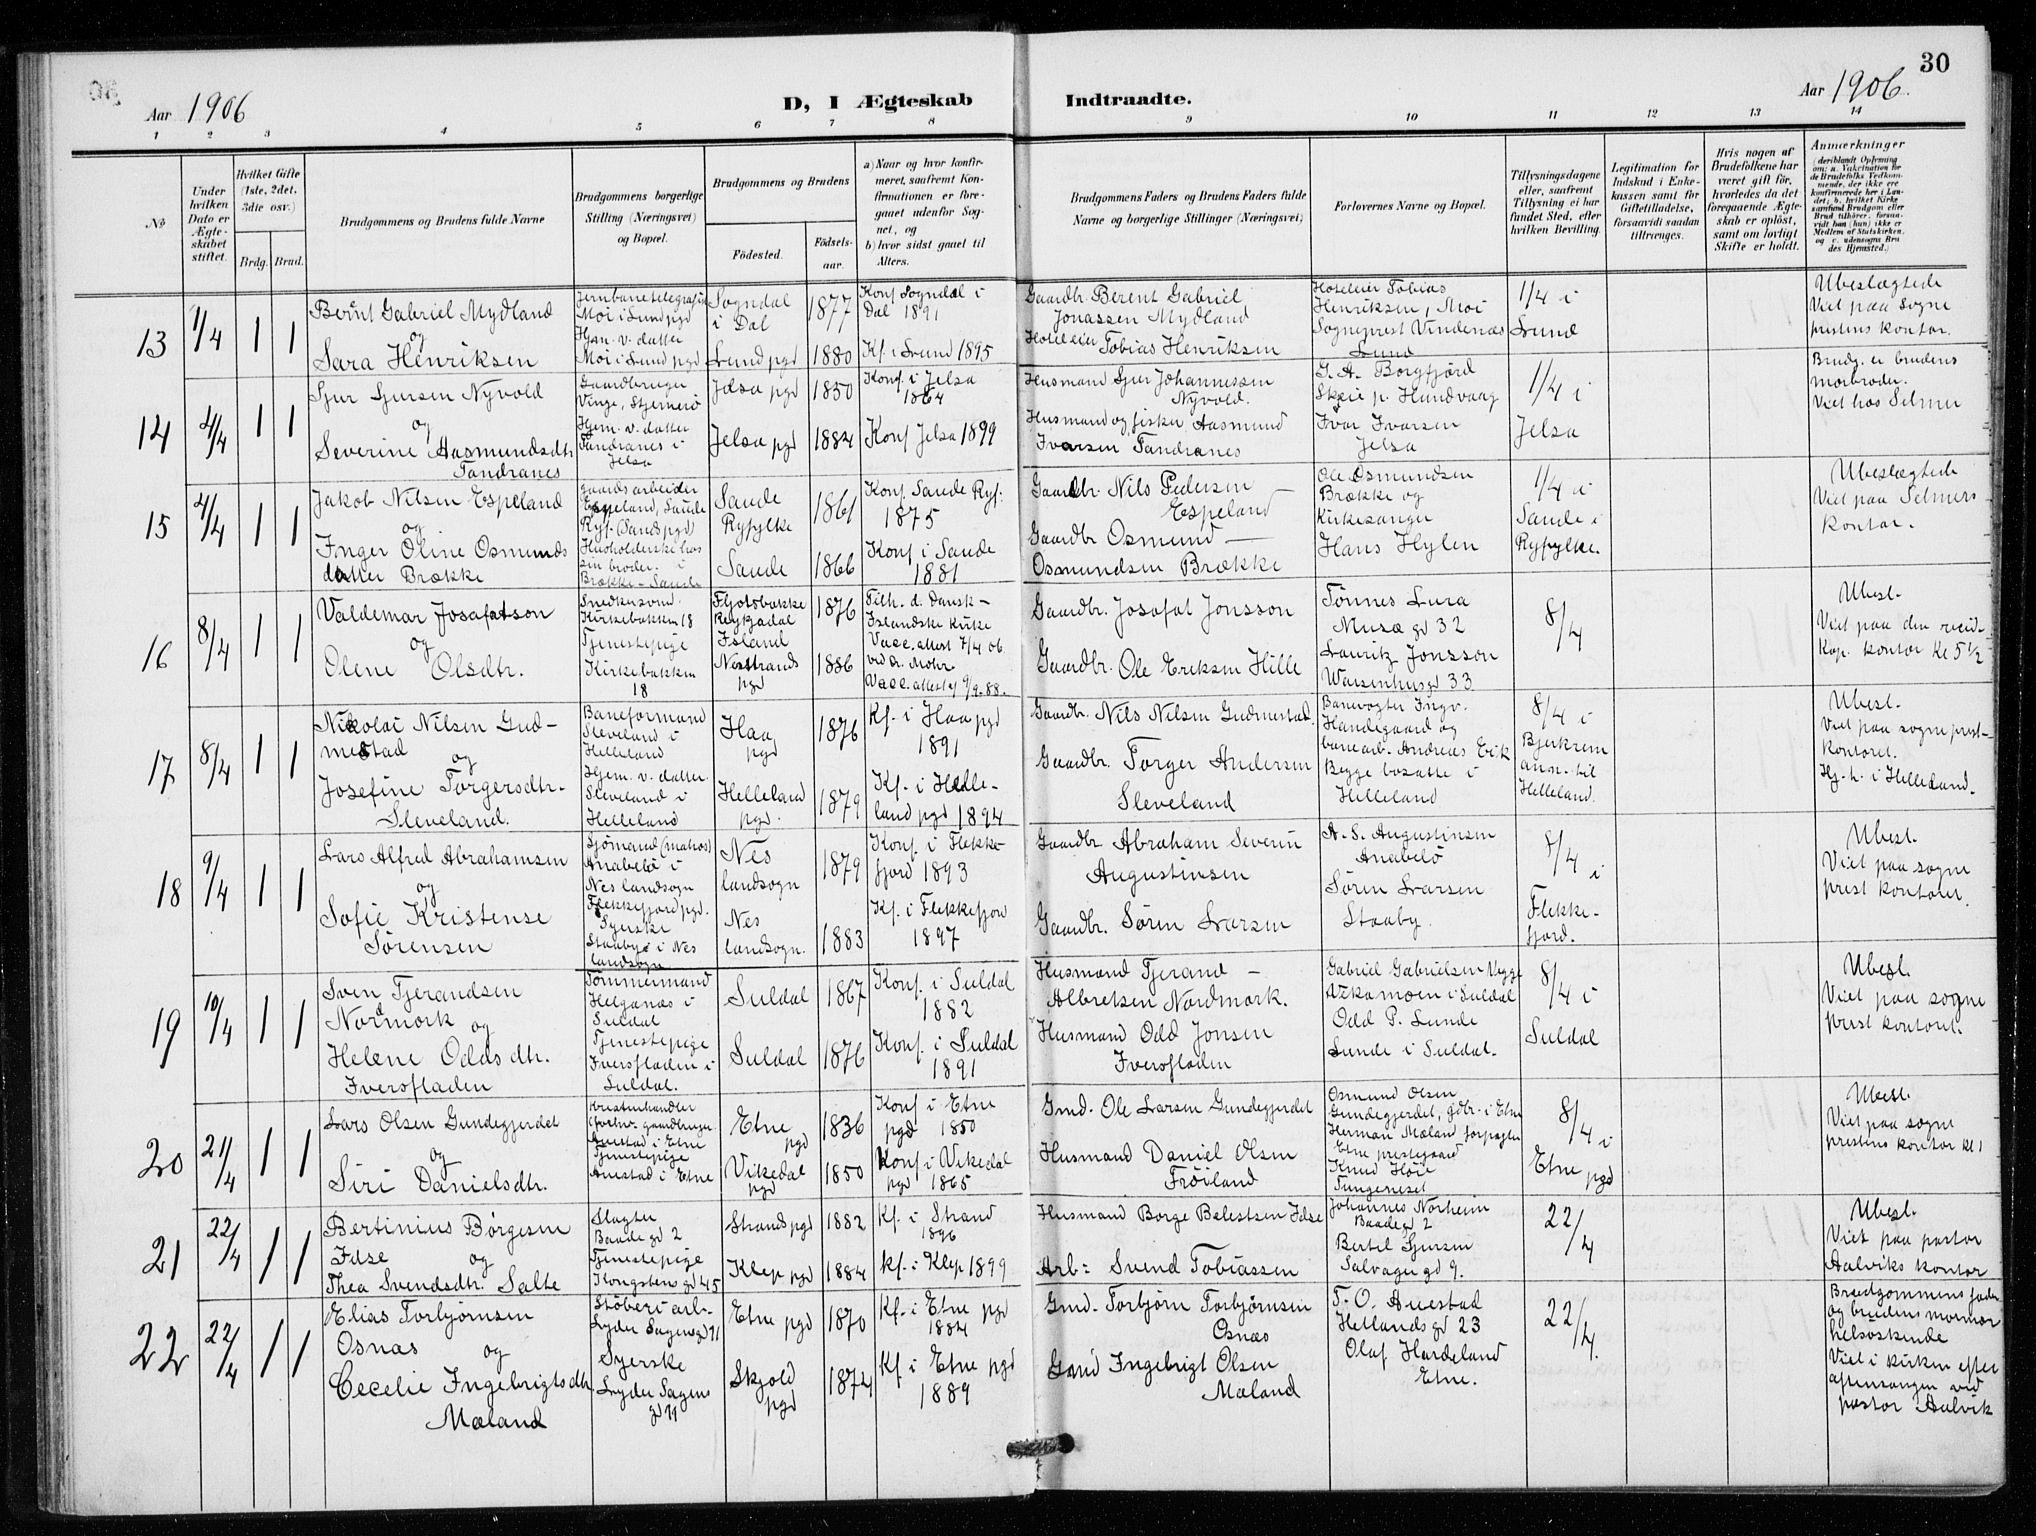 30
Aar 1906
D, I Ægteskab Indtraadte.
Aar 1906.
1 2 3 4 5 6 7 8 9 10 11 12 13 14
No
Under hvilken Dato er Ægteskabet stiftet.
Hvilket Gifte (1ste, 2det, 3die osv.)
Brdg. Brud.
Brudgommens og Brudens fulde Navne
Brudgommens borgerlige Stilling (Næringsvei) og Bopæl.
Brudgommens og Brudens
Fødested.
Fødselsaar.
a) Naar og hvor konfirmeret, saafremt Konfirmationen er foregaaet udenfor Sognet, og
b) hvor sidst gaaet til Alters.
Brudgommens Faders og Brudens Faders fulde Navne og borgerlige Stillinger (Næringsvei)
Forlovernes Navne og Bopæl.
Tillysningsdagene eller, saafremt Tillysning ei har fundet Sted, efter hvilken Bevilling.
Legitimation for Indskud i Enkekassen samt for Giftetilladelse, forsaavidt saadan tiltrænges.
Hvis nogen af Brudefolkene har været gift før, hvorledes da det foregaaende Ægteskab er opløst, samt om lovligt Skifte er holdt.
Anmærkninger
(deriblandt Oplysning om: a. Vakcination for de Brudefolks Vedkommende, der ikke ere konfirmerede her i Landet; b. hvilket Kirkesamfund Brudgom eller Brud tilhører, forsaavidt han (hun) ikke er Medlem af Statskirken, og c. udensogns Brudes Hjemsted.)
13
1/4
1 1
Bernt Gabriel Mydland
og
Sara Henriksen
Jernbanetelegrafist
Moi i Lund pgd
Hjm. v. datter
Moi i Lund pgd
Sogndal
i Dal
Lund pgd
1877
1880
Konf. Sogndal i
Dal 1891
Kf. i Lund 1895
Gaardbr. Berent Gabriel
Jonassen Mydland
Hoteleier Tobias Henriksen
Hoteleier Tobias
Henriksen, Moi
Sogneprest Vindenæs
Lund
1/4 i
Lund
Ubeslægtede
Viet paa Sogne
prestens kontor.
14
2/4
1 1
Sjur Sjursen Nyvold
og
Severine Aasmundsdtr
Tandranes
Gaardbruger
Vinge, Stjernerö
Hjem. v. datter
Tandranes i
Jelsa
Jelsa pgd
Jelsa pgd
1850
1884
Konf. i Jelsa
1864
Konf Jelsa 1899
Husmand Sjur Johannessen
Nyvold.
Husmand og fisker, Aasmund
Ivarsen Tandranes
G. A. Borgfjörd
Skeie p. Hundvaag
Ivar Ivarsen
Jelsa
1/4 i
Jelsa
Brudg. er brudens
morbroder.
Viet hos Selmer
15
2/4
1 1
Jakob Nilsen Espeland
og
Inger Oline Osmunds
datter Brække
Gaardsarbeider
Espeland, Saude
Ryf. (Sand pgd)
Husholderske hos
sin broder. i
Brække - Saude
Saude
Ryfylke
Saude
1861
1866
Konf. Saude Ryf.
1875
Konf. i Saude
1881
Gaardbr. Nils Pedersen
Espeland
Gaardbr Osmund
Osmundsen Brække
Ole Osmundsen
Brække og
Kirkesanger
Hans Hylen
1/4 i
Saude i
Ryfylke.
Ubeslægtede
Viet paa Selmers
kontor.
16
8/4
1 1
Valdemar Josafatson
og
Olene Olsdtr.
Snedkersvend
Kirkebakken 18
Tjenestepige
Kirkebakken
18
Fljotsbakke
Reykjadal
Island
Nerstrands
pgd
1876
1886
Tilh. d. Dansk-
Islandske kirke
Vacc. attest 7/4 06
ved dr. Mohr
Vacc. attest af 9/9.88.
Gaardbr. Josafat Jonsson
Gaardbr. Ole Eriksen Hille
Tönnes Lura
Musæ gd 32
Lauritz Jonsson
Waisenhusgd 33
8/4
Ubesl.
Viet paa den resid-
Kap. kontor Kl 5 1/2
17
8/4
1 1
Nikolai Nilsen Gud-
mestad
og
Josefine Torgersdtr.
Sleveland.
Baneformand
Sleveland i
Helleland
Hjem. v. datter
Sleveland i
Helleland
Haa
pgd
Helleland
pgd.
1876
1879
Kf. i Haa pgd
1891
Kf. i Helle-
land pgd 1894
Gaardbr. Nils Nilsen Gudmestad.
Gaardbr. Torger Andersen
Sleveland
Banevogter Ingv.
Handegaard og
banearb. Andreas Eik
Begge bosatte i
Helleland
8/4 i
Bjerkrem
ann. til
Helleland.
Ubesl.
Viet paa sogneprest-
kontoret.
Hj. h. i Helleland.
18
9/4
1 1
Lars Alfred Abrahamsen
og
Sofie Kristense
Sörensen
Sjömand (matros)
Anabelö i
Nes landsogn
Flekkefjord pgd.
Syerske
Staaby i Nes
landsogn
Nes
landsogn
Nes
landsogn.
1879
1883
Konf. i Flekke-
fjord 1893
Kf. i Flekkefjord
1897
Gaardbr Abraham Severin
Augustinsen
Gaardbr. Sören Larsen
A. S. Augustinsen
Anabelö
Sören Larsen
Staaby.
8/4 i
Flekke-
fjord.
Ubesl.
Viet paa sogne
prest kontoret.
19
10/4
1 1
Sven Tjerandsen
Nordmork og
Helene Oddsdtr.
Iversfladen
Tömmermand
Helganæs i
Suldal
Tjenestepige
Iversfladen i
Suldal.
Suldal
Suldal
1867
1876
Konf. i Suldal
1882
Konf. i Suldal
1891
Husmand Tjerand
Albretsen Nordmork.
Husmand Odd Jonsen
Iversfladen
Gabriel Gabrielsen Vegge
Vekamoen i Suldal
Odd P. Lunde
Lunde i Suldal.
8/4 i
Suldal
Ubesl.
Viet paa sogne
prest kontoret.
20
21/4
1 1
Lars Olsen Gundegjerdet
og
Siri Danielsdtr.
Kreaturhandler
(forhv. gaardbruger
Auestad i Etne
Tjenestepige
Auestad i Etne
Etne
pgd
Vikedal
pgd
1836
1850
Konf i Etne
pgd 1850
Konf i Vikedal
pgd 1865
Gmd. Ole Larsen Gundegjerdet
Husmand Daniel Olsen
Fröiland
Osmund Olsen
Gundegjerdet, gdbr. i Etne
Herman Mæland forpagter
Etne prestegaard
Knud Höie
Tungeneset
8/4 i
Etne
pgd
Ubesl.
Viet paa sogne
prestens kontor kl 1
21
22/4
1 1
Bertinius Börgesen
Idse og
Thea Svendsdtr. Salte
Slagter
Baadegd 2
Tjenestepige
Kongsten gd 45
Strand pgd
Klep pgd
1882
1884
Kf. i Strand
1896
Kf. i Klep 1899
Husmand Borge Balestsen Idse
Arb: Svend Tobiassen
Johannes Norheim
Baadegd 2
Bertil Sjursen
Salvager gd 9.
22/4
Ubesl.
Viet paa pastor
Aalviks kontor
22
22/4
1 1
Elias Torbjörnsen
Osnas og
Cecelie Ingebrigtsdtr.
Mæland
Støberi arb.
Lyder Sagensgd 11
Syerske
Lyder Sagens
gd 11
Etne pgd
Skjold
pgd
1870
1874
Kf. i Etne pgd
1884
Kf. i Etne pgd
1889
Gmd. Torbjörn Torbjörnsen
Osnæs
Gmd Ingebrigt Olsen
Mæland
T. O. Auestad
Hetlands gd 23
Olaf Hardeland
Etne.
22/4.
Brudgommens fader
og brudens mormor
helsöskende
Viet i kirken efter
aftensangen ved
pastor Aalvik